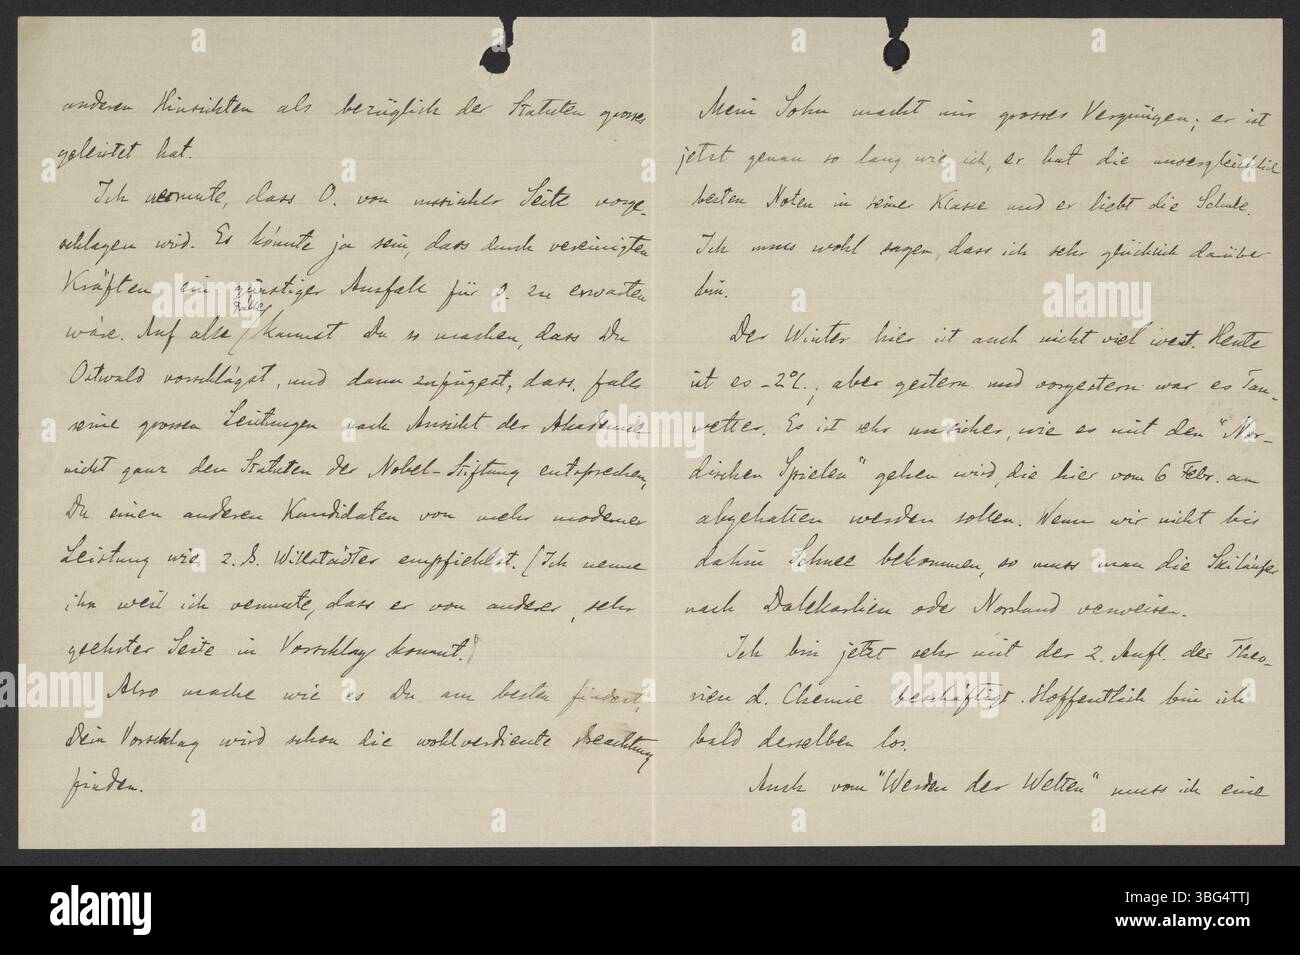 anderen Hinsichten als bezüglich der Statuten grosses
geleistet hat.
Ich vermute, dass O. von russischer Seite vorge-
schlagen wird. Es könnte ja sein, dass durch vereinigten
Kräften ein günstiger Ausfall für O. zu erwarten
wäre. Auf alle Fälle kannst Du so machen, dass Du
Ostwald vorschlägst, und dann zufügest, dass, falls
seine grossen Leistungen nach Ansicht der Akademie
nicht ganz den Statuten der Nobel-Stiftung entsprechen,
Du einen anderen Kandidaten von mehr moderner
Leistung wie z. B. Willstädter empfiehlst. (Ich nenne
ihn weil ich vermute, dass er von anderer, sehr
geehrter Seite in Vorschlag kommt.)
Also mache wie es Du am besten findest,
Dein Vorschlag wird schon die wohlverdiente Beachtung
finden.
Mein Sohn macht mir grosses Vergnügen; er ist
jetzt genau so lang wie ich, er hat die unvergleichlich
besten Noten in seiner Klasse und er liebt die Schule.
Ich muss wohl sagen, dass ich sehr glücklich darüber
bin.
Der Winter hier ist auch nicht viel wert. Heute
ist es -2°C, aber gestern und vorgestern war es Tau-
wetter. Es ist sehr unsicher, wie es mit den "Nor-
dischen Spielen" gehen wird, die hier vom 6 Febr. an
abgehalten werden sollen. Wenn wir nicht bis
dahin Schnee bekommen, so muss man die Skiläufer
nach Dalekarlien oder Norrland verweisen.
Ich bin jetzt sehr mit der 2. Aufl. der Theo-
rien d. Chemie beschäftigt. Hoffentlich bin ich
bald derselben los.
Auch vom "Werden der Welten" muss ich eine
alamy
Image ID: 3BG4TTJ
www.alamy.com